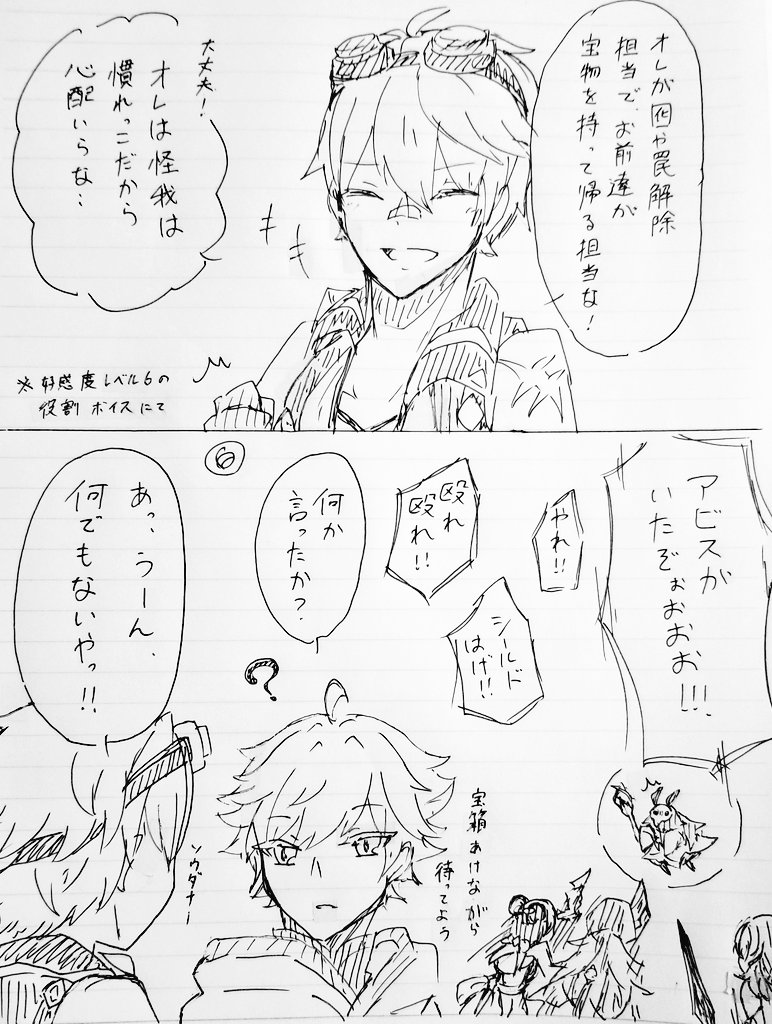 オレが囮や罠解除
担当で、お前達が
宝物を持って帰る担当な!
大丈夫!
オレは怪我は
慣れっこだから
心配いらな‥
※好感度レベル6の
役割ボイスにて
アビスが
いたぞぉぉおお!!!
やれ!!
殴れ
殴れ!!
シールド
はげ!!
何か
言ったか?
6
あっ、うーん、
何でもないやっ!!
?
宝箱あけながら
待ってよう
ソウダナー